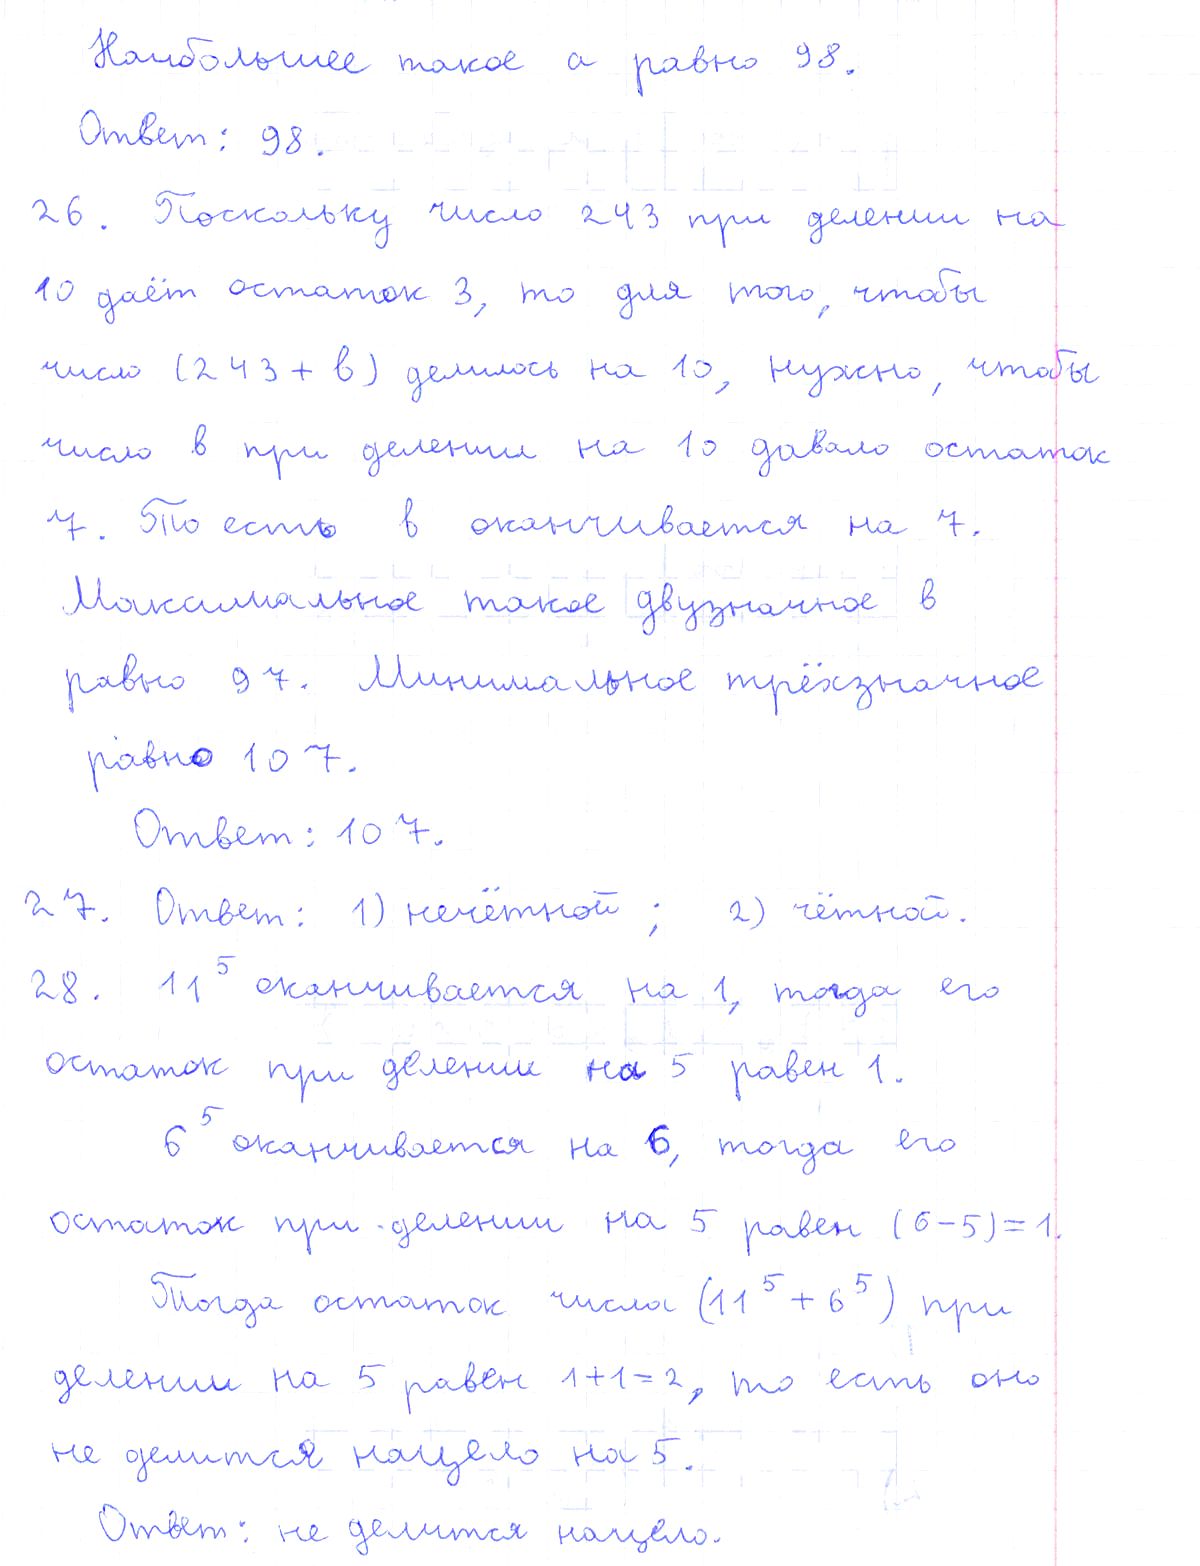 Наибольшее такое a равно 98.
Ответ: 98.
26. Поскольку число 243 при делении на
10 даёт остаток 3, то для того, чтобы
число (243 + b) делилось на 10, нужно, чтобы
число b при делении на 10 давало остаток
7. То есть b оканчивается на 7.
Максимальное такое двузначное b
равно 97. Минимальное трёхзначное
равно 107.
Ответ: 107.
27. Ответ: 1) нечётной; 2) чётной.
28. 11⁵ оканчивается на 1, тогда его
остаток при делении на 5 равен 1.
6⁵ оканчивается на 6, тогда его
остаток при делении на 5 равен (6-5)=1.
Тогда остаток числа (11⁵ + 6⁵) при
делении на 5 равен 1+1=2, то есть оно
не делится нацело на 5.
Ответ: не делится нацело.